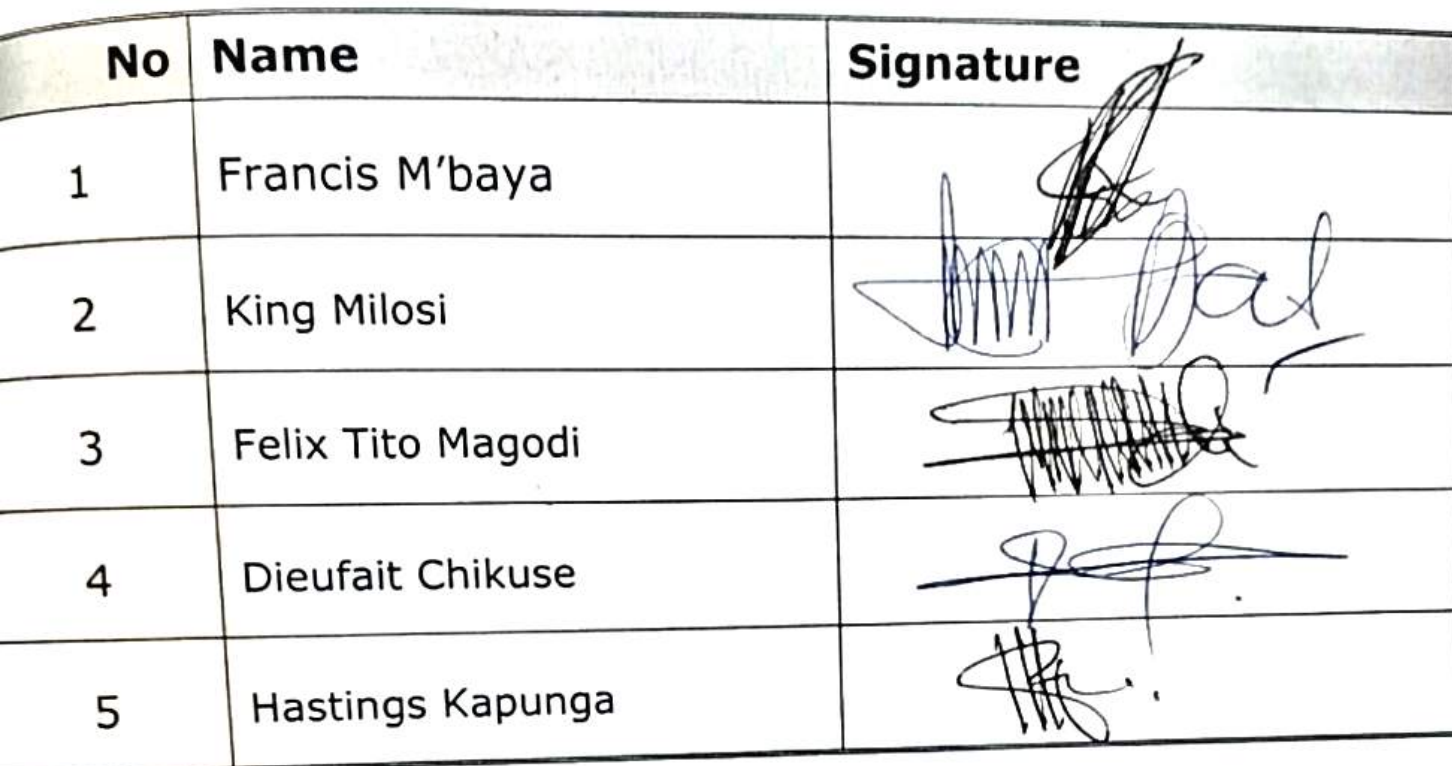 No Name Signature
1 Francis M'baya
2 King Milosi
3 Felix Tito Magodi
4 Dieufait Chikuse
5 Hastings Kapunga